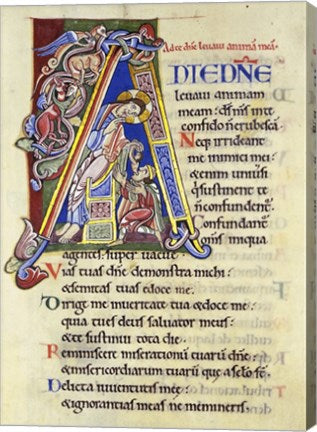 Ad te dñe levavi animã meã.
AD TE DÑE
levavi animam
meam: dſ mſ in te
confido ñ erubescã.
Neq; irrideant
me inimici mei:
& enim univsi
q̃ sustinent te
n confundent͛.
Confundant͛
om̃s iniqua
agentes: super vacue.
Vias tuas dñe demonstra michi:
& semitas tuas edoce me.
Dirige me in veritate tua & doce me:
quia tu es deus salvator meus:
& te sustinui tota die.
Reminiscere miserationũ tuarũ dñe:
& misericordiarum tuarũ que a sclo sẽ.
Delicta iuventutis mee:
& ignorantias meas ne memineris.